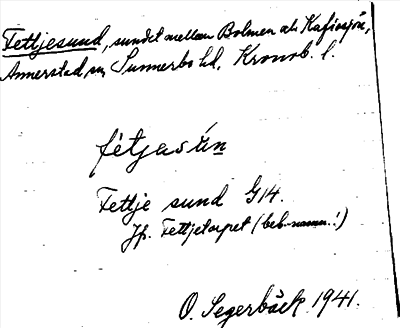 Fettjesund, sundet mellan Bolmen och Kafjosjön,
Annerstad sn, Sunnerbo hd, Kronob. l.
fètjasún
Fettje sund G14.
Jfr. Fettjetorpet (beb.-namn!)
O. Segerbäck 1941.